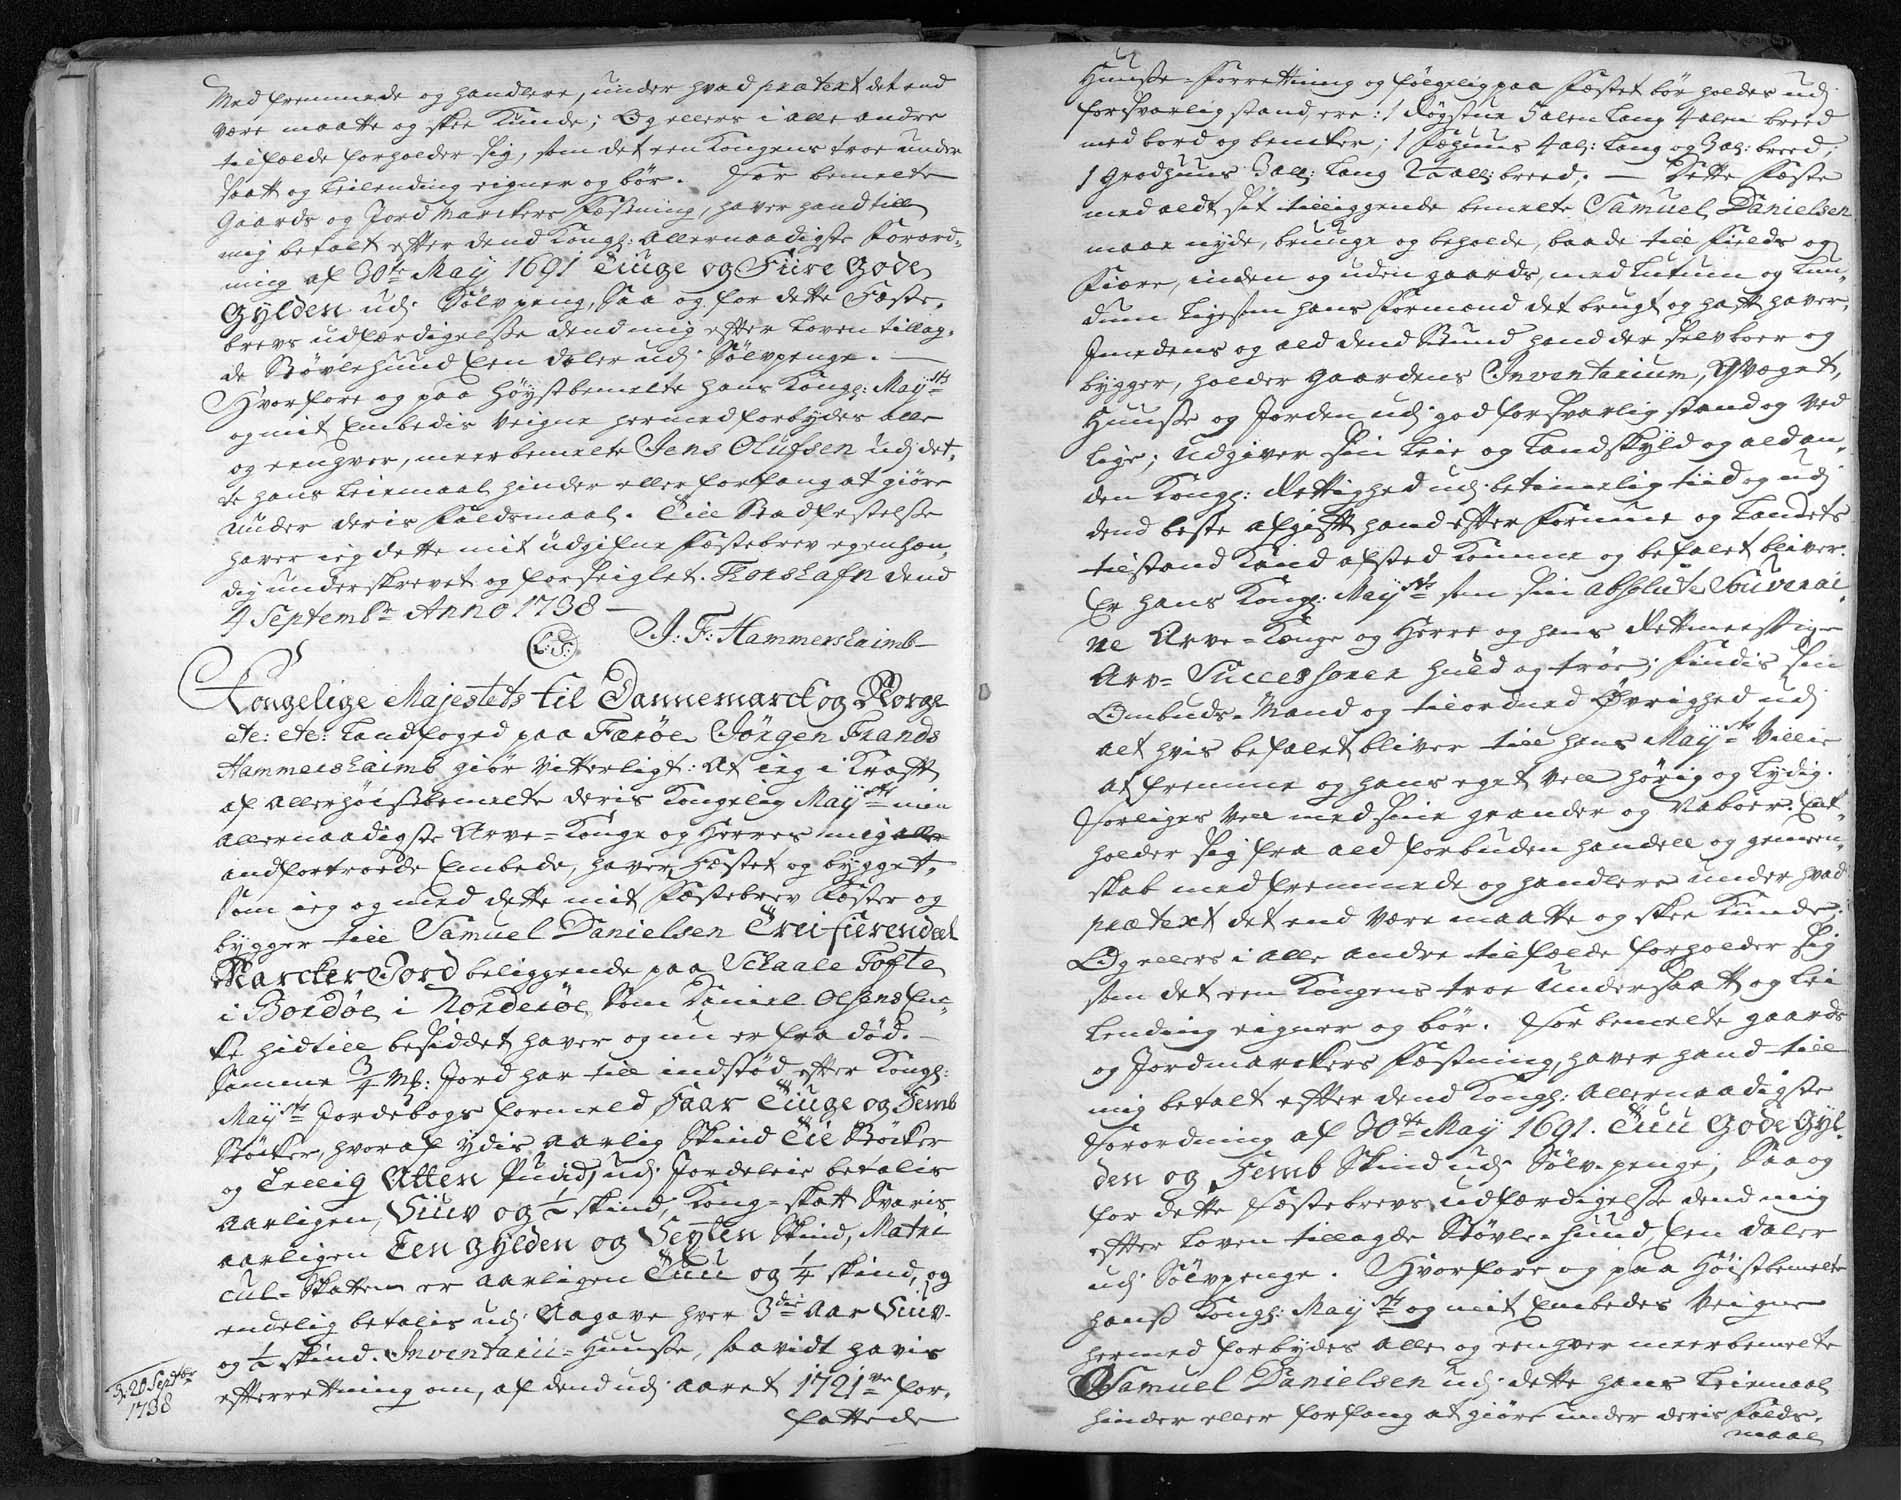 Med fremmede og handlere, under hvad prætext det end
være maatte og skee kunde; Og ellers i alle andre
tilfælde forholder sig, som det een Kongens troe under
saatt og Leilending eigner og bør. For bemelte
Gaards og Jord Marckers Fæstning, haver hand till
mig betalt efter dend Kongl: Allernaadigste Forord¬
ning af 30te Maÿ 1691 Tiuge og Fiire Gode
Gylden udj Sölv peng, saa og for dette Fæste¬
brevs udfærdigelsse dend mig efter Loven tillag¬
de Støvlehund Een daler udj Sölvpenge. —
Hvorfore og paa Höÿstbemelte Hans Kongl: Maÿsts
og mit Embedis Veigne hermed forbydes alle
og eenhver, meerbemelte Jens Olufsen udj det¬
te hans Leiemaal hinder eller forfang at giøre
under deris Faldsmaal. Till Stadfestelsse
haver ieg dette mit udgifne Fæstebrev egenhæn¬
dig underskrevet og forseiglet. Thorshafn dend
4 Septembr Anno 1738 —
(L:S:) J: F: Hammershaimb
Kongelige Majestets til Dannemarck og Norge
etc: etc: Landfoged paa Færöe Jörgen Frands
Hammershaimb giör Vitterligt: At ieg i Krafft
af Allerhöistbemelte deris Kongelig Maÿsts min
Allernaadigste Arve-Konge og Herres mig aller
andfortroede Embede, haver Fæstet og bygget,
som ieg og med dette mit Fæstebrev Fæster og
bygger till Samuel Danielsen Trei fierendeel
Marcker Jord beliggende paa Schaale Tofte
i Bordöe i Norderöe, som Daniel Olsens En¬
ke hidtill besiddet haver og nu er fra död. —
Samme 3/4 Mk: Jord har till indstöd efter Kongl:
Maÿsts Jordebogs formeld Faar Tiuge og Femb
Støcker, hvoraf ydis aarlig Skind Tie Stöcker
og Tellig Atten Pund, udj Jordeleie betalis
aarligen, Siuv og ½ skind, Kong-skatt svaris
aarligen Een gylden og Seyten Skind, Matri
cul-Skatten er aarligen Tuu og ¼ skind, og
endelig betalis udj Aagave hver 3die Aar Siuv
og ½ skind. Inventarii-Huusse, saavidt havis
efterretning om, af dend udj aaret 1721ve for¬
fattede
d: 20 Septbr
1738
Huusse-Forretning og fölgelig paa Fæstet bör holdes udj
forsvarlig stand, ere: 1 Røgstue 5 alen Lang 4 alen breed
med bord og bencker; 1 Fæhuus 4 al: Lang og 3 al: breed;
1 Grodhuus 3 all: Lang 2½ all: breed; — Dette Fæste
med aldt sit tilliggende bemelte Samuel Danielsen
maae nÿde, bruuge og beholde, baade till Fields og
Fiære, inden og uden gaards, med Lutum og Lun¬
dum ligesom hans Formand det brugt og hafft haver,
Imedens og ald dend Stund hand der selv boer og
bygger, holder Gaardens Inventarium, Qvæget,
Huusse og Jorden udj god forsvarlig stand og ved
lige; udgiver sin Leie og Landskÿld og ald an¬
den Kongl: Rettighed udj betimelig tiid og udj
dend beste afgifft hand efter Formue og Landets
tilstand kand afsted komme og befalet bliver.
Er hans Kongl: Maÿsts som sin absolute Souverai¬
ne Arve-Konge og Herre og hans Retmæssige
Arv-Successorer huld og tröe; Findis sin
Ombuds-Mand og tilordned Øvrighed udj
alt hvis befalet bliver till hans Maÿsts Villie
at fremme og hans eget Vell hörig og Lydig.
Forliges Vell med sine grander og Naboer. Ent¬
holder sig fra ald forbuden handell og gemeen¬
skab med fremmede og handlere under hvad
prætext det end være maatte og skee kunde;
Og ellers i alle andre tilfælde forholder sig
som det een Kongens troe Undersaatt og Lei
Lending eigner og bör. For bemelte gaards
og Jordmarckers Fæstning, haver hand till
mig betalt efter dend Kongl: Allernaadigste
Forordning af 30te Maÿ 1691. Tuu Gode Gyl¬
den og Femb Skind udj Sölv-penge; Saa og
for dette Fæstebrevs udfærdigelsse dend mig
efter Loven tillagde Støvle-hund, Een daler
udj Sölvpenge. Hvorfore og paa Höistbemelte
hanß Kongl: Maÿsts og mit Embedes Veigne
hermed forbydes alle og eenhver meerbemelte
Samuel Danielsen udj dette hans Leiemaal
hinder eller forfang at giöre under deris Falds¬
maal